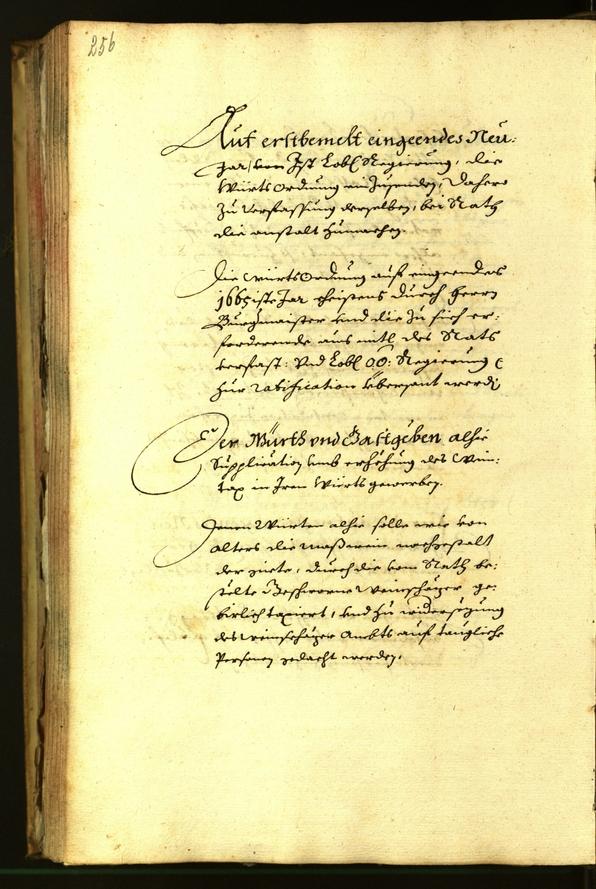 256
Auf erstbemelt eingeendes Neu:
Jar, von Ir Lobl Regierung, die
Würts Ordnung einzusenden, dahero
zu verfassung derselben, bei Rath
die anstalt zumachen.
Die WürtsOrdnung auf eingeendes
1665iste Jar solle durch Herrn
Burgmaister und die zu sich er:
forderende aus mitl des Raths
verfast: Und Lobl OÖ: Regierung
zur ratification übersant werden
Der Würth vnd Gastgeben alhie
Supplication umb erhöhung des Wein:
tax in Iren Würtsgewerben.
Denen Würten alhie solle wie von
alters die maß wein nach gestalt
der güete, durch die vom Rath be:
stelte Geschworne Weinschäzer ge:
bürlich taxiert, und zu widersezung
des weinschäzer Ambts auf taugliche
Personen gedacht werden.